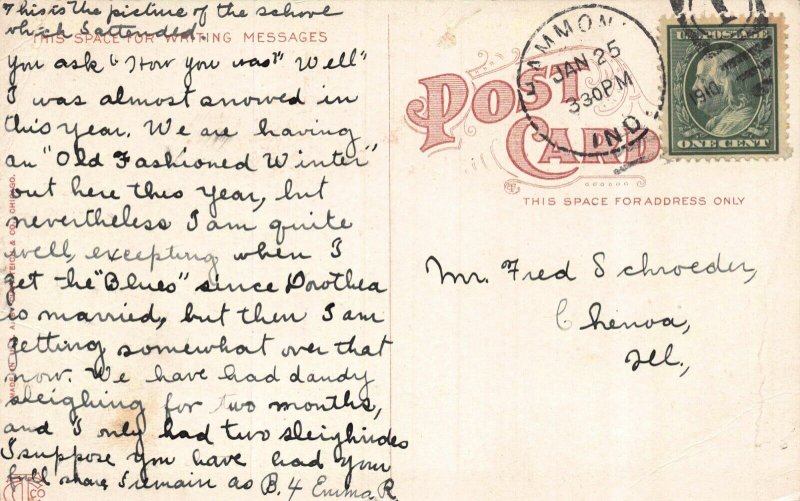 This is the picture of the school
which I attended.
THIS SPACE FOR WRITING MESSAGES
you ask "How you was?" "Well"
I was almost snowed in
this year. We are having
an "Old Fashioned Winter"
out here this year, but
nevertheless I am quite
well, excepting when I
get the "Blues" since Dorothea
is married, but then I am
getting somewhat over that
now. We have had dandy
sleighing for two months,
and I only had two sleighrides
I suppose you have had your
full share I remain as B. 4 Emma R.
POST
CARD
THIS SPACE FOR ADDRESS ONLY
JAN 25
330PM
1910
IND.
U.S. POSTAGE
ONE CENT
Mr. Fred Schroeder,
Chenoa,
Ill.,